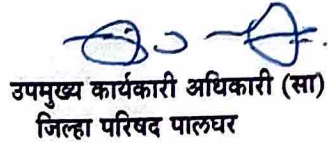 उपमुख्य कार्यकारी अधिकारी (सा)
जिल्हा परिषद पालघर